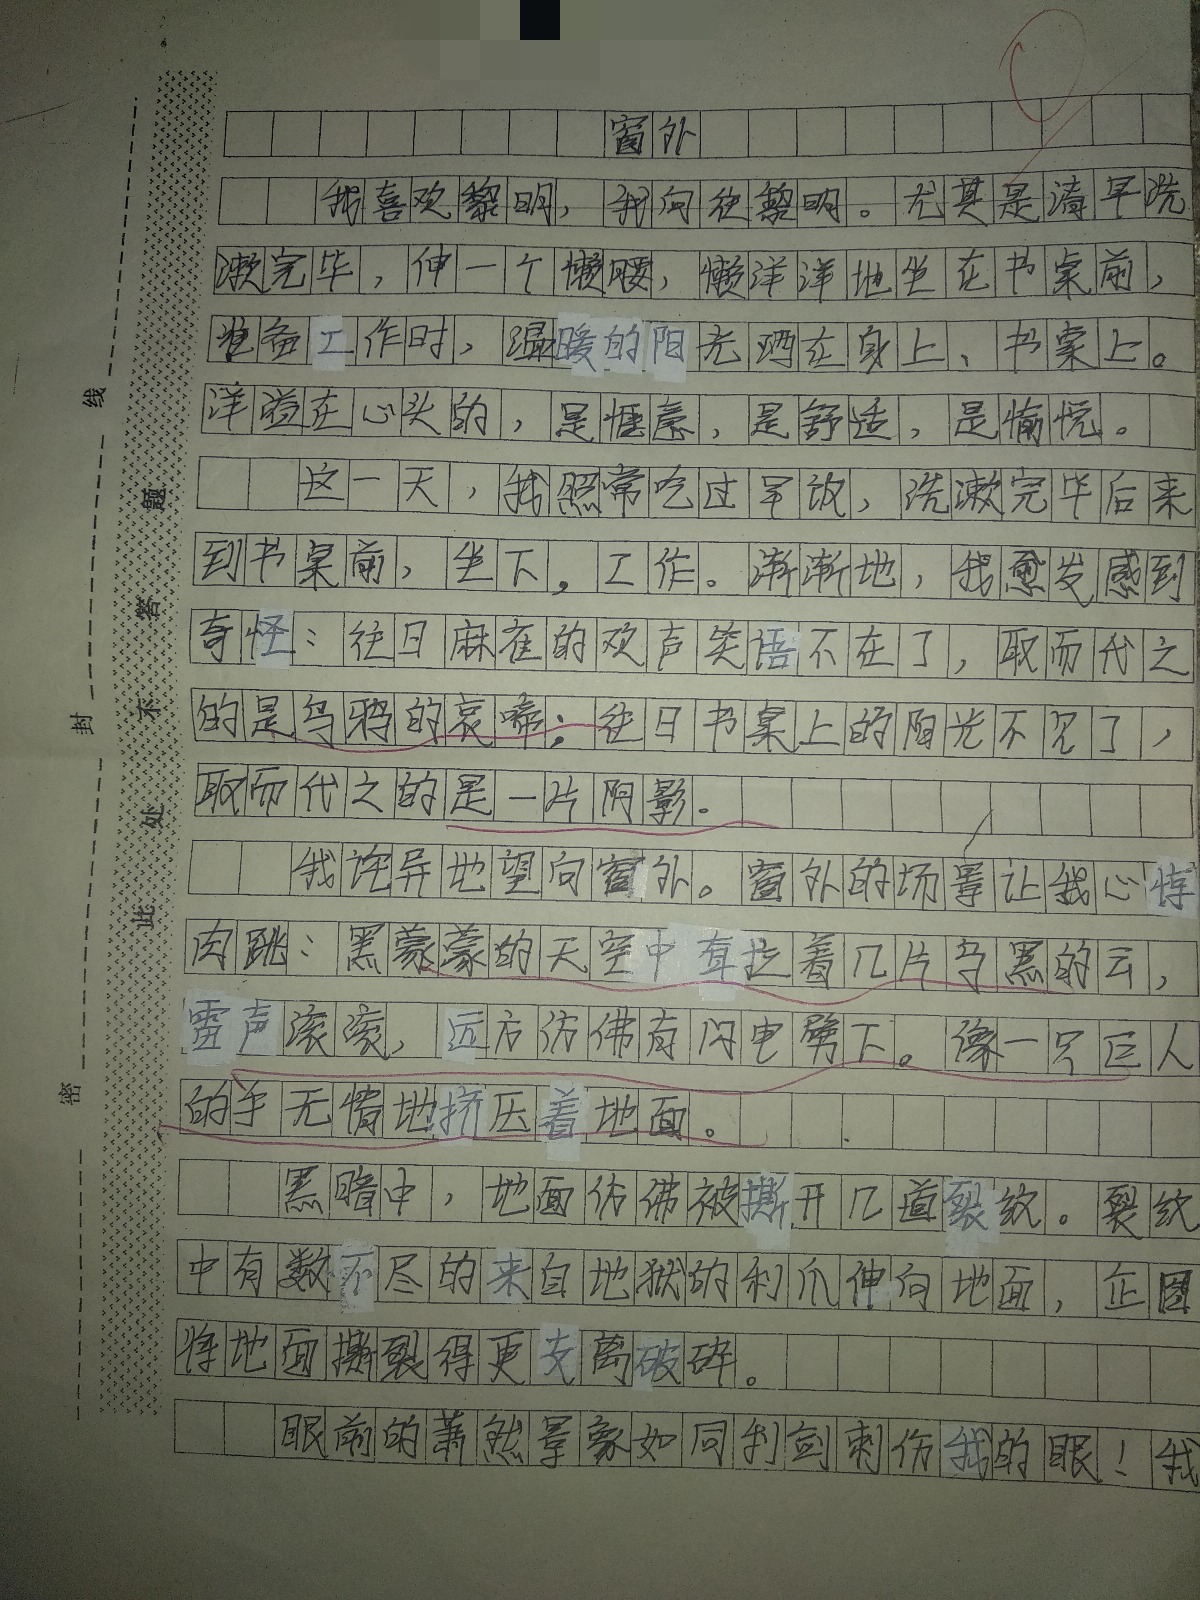 窗外
我喜欢黎明，我向往黎明。尤其是清早洗
漱完毕，伸一个懒腰，懒洋洋地坐在书桌前，
准备工作时，温暖的阳光洒在身上、书桌上。
洋溢在心头的，是惬意，是舒适，是愉悦。
这一天，我照常吃过早饭，洗漱完毕后来
到书桌前，坐下，工作。渐渐地，我愈发感到
奇怪：往日麻雀的欢声笑语不在了，取而代之
的是乌鸦的哀嚎；往日书桌上的阳光不见了，
取而代之的是一片阴影。
我诧异地望向窗外。窗外的场景让我心悸
肉跳：黑蒙蒙的天空中耷拉着几片乌黑的云，
雷声滚滚，远方仿佛有闪电劈下。像一只巨人
的手无情地挤压着地面。
黑暗中，地面仿佛被撕开几道裂纹。裂纹
中有数不尽的来自地狱的利爪伸向地面，企图
将地面撕裂得更支离破碎。
眼前的萧然景象如同利剑刺伤我的眼！我
线
封
密
题
答
不
处
此